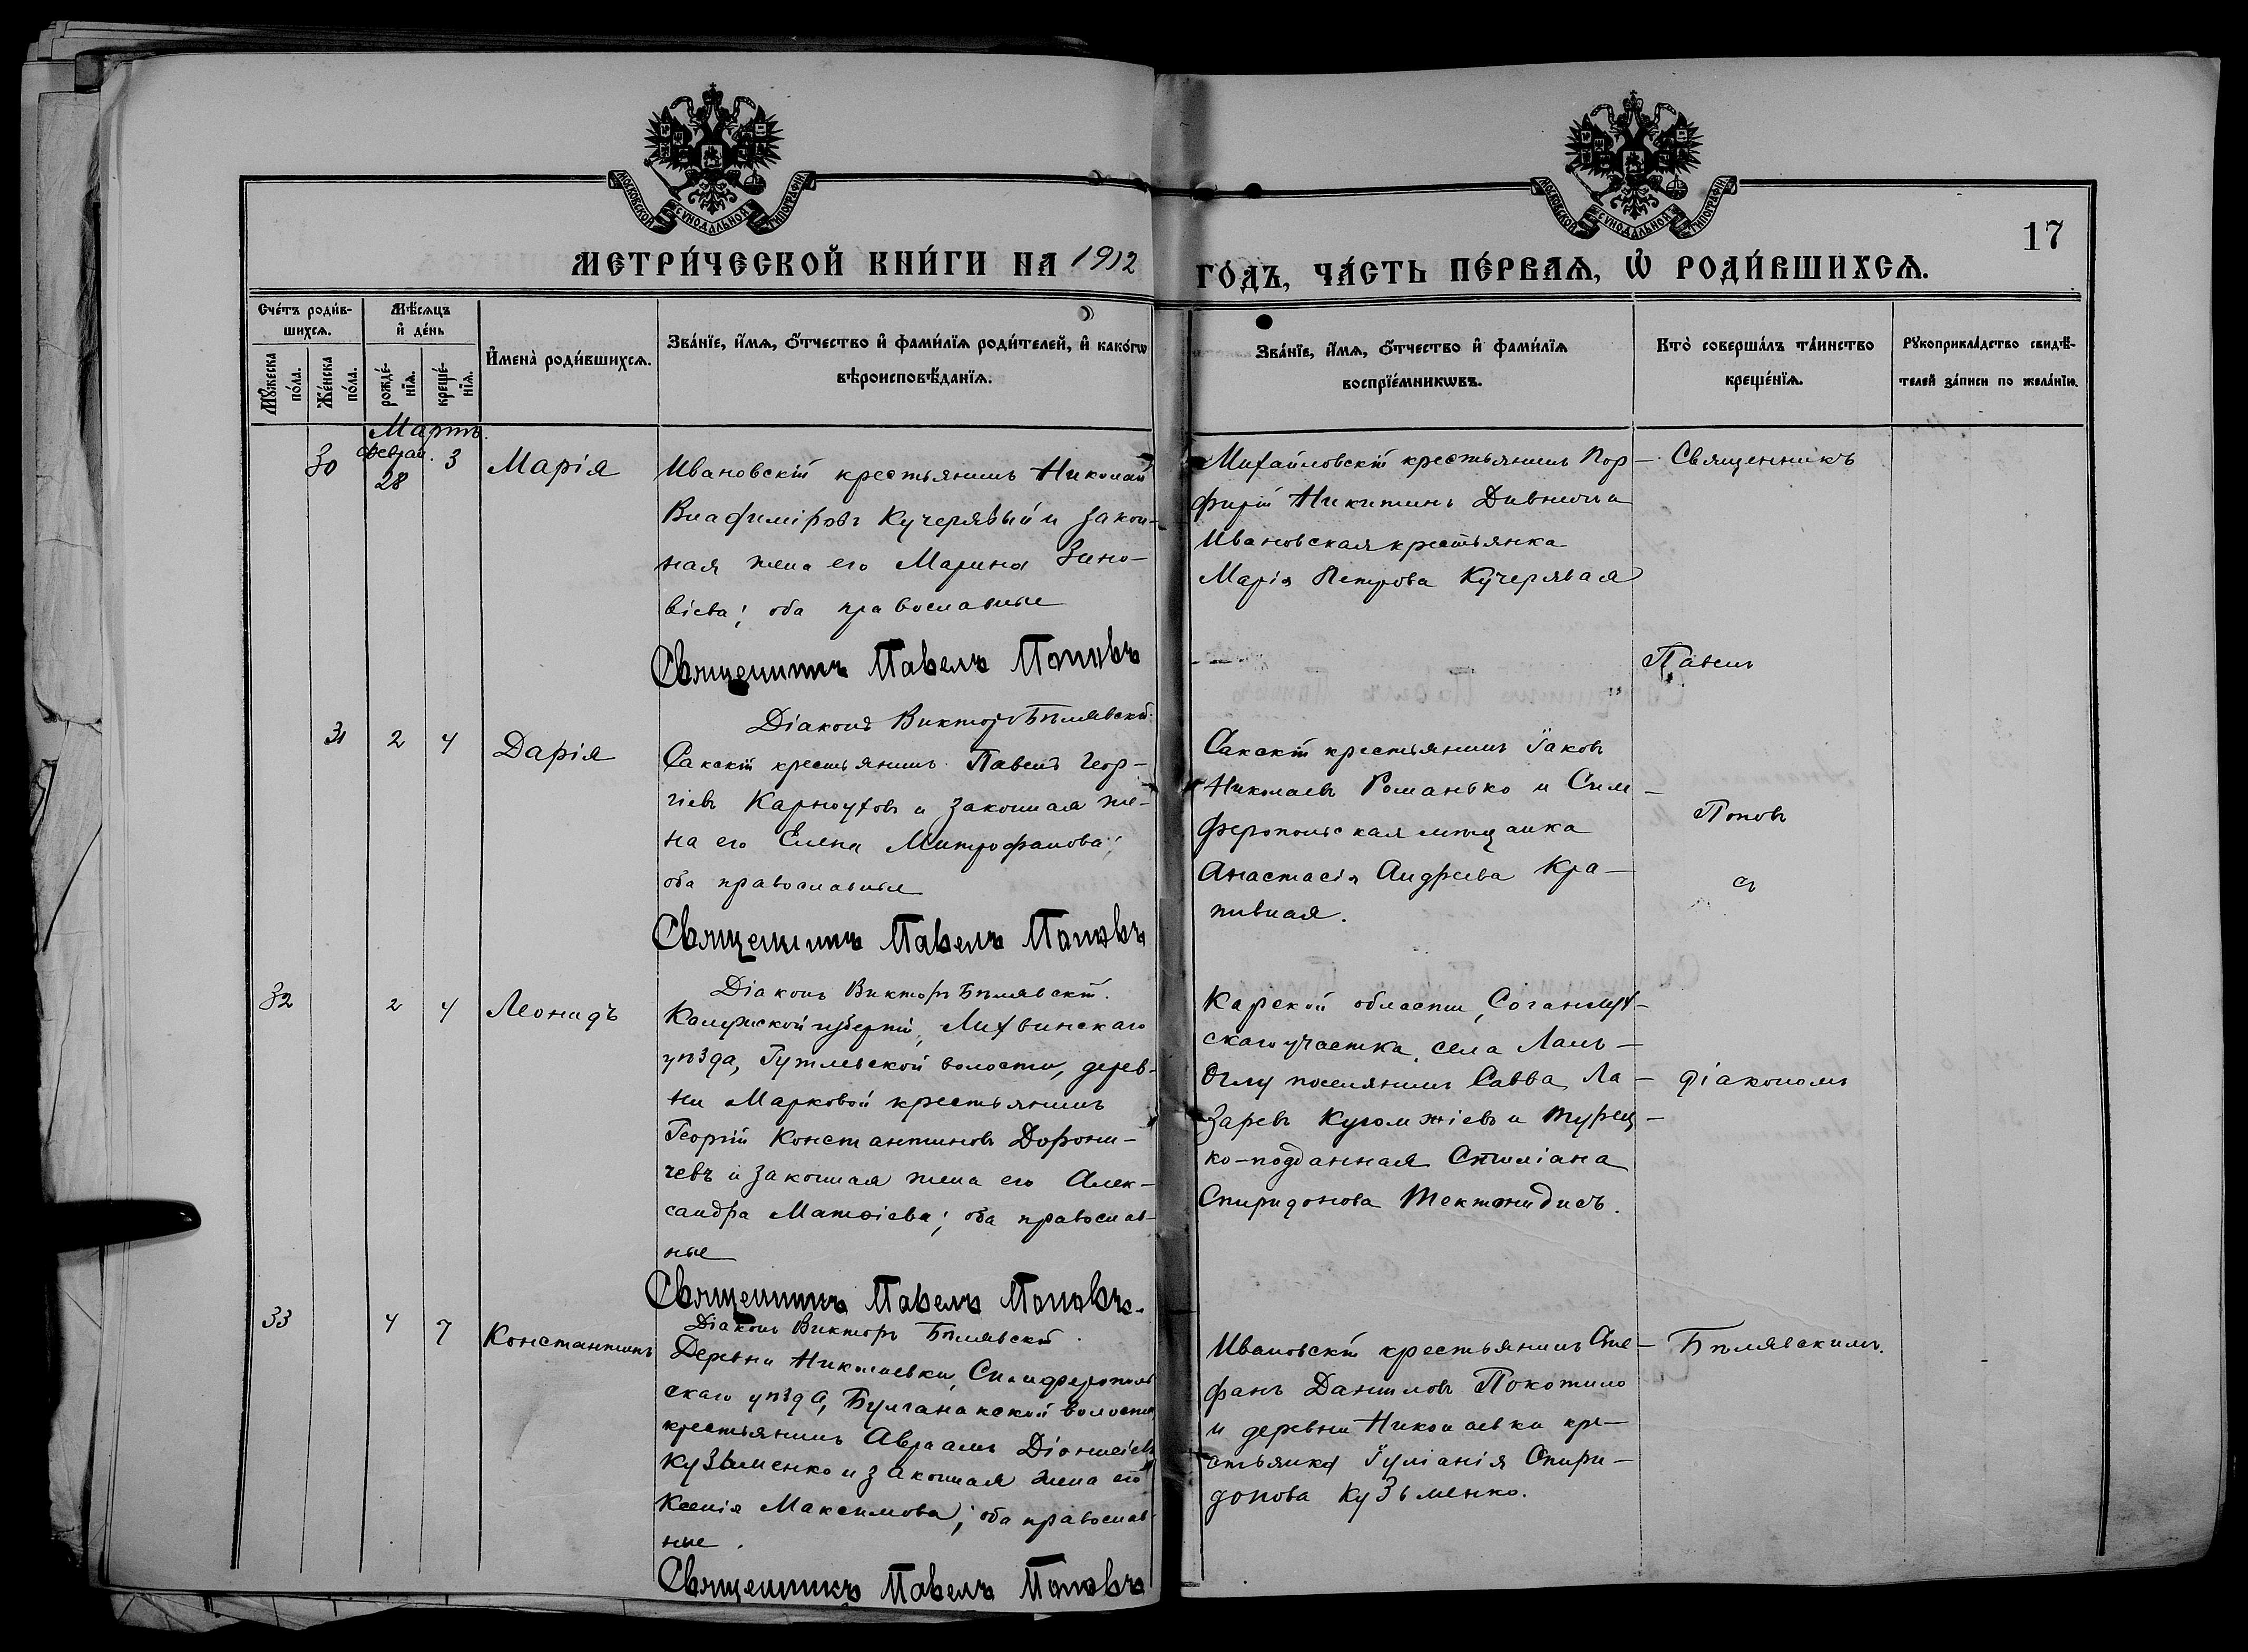 МОСКОВСКОЙ СѴНОДАЛЬНОЙ ТИПОГРАФІИ
МОСКОВСКОЙ СѴНОДАЛЬНОЙ ТИПОГРАФІИ
17
МЕТРИ́ЧЕСКОЙ КНИ́ГИ НА 1912
ГО́ДЪ, ЧА́СТЬ ПЕ́РВАѦ, Ѡ РОДИ́ВШИХСѦ.
Сче́тъ роди́в-
шихсѧ.
Мѣ́сѧцъ
и҆ де́нь
Мꙋ́жеска
по́ла.
Же́нска
по́ла.
рожде́-
нїѧ.
креще́-
нїѧ.
И҆мена̀ роди́вшихсѧ.
Зва́нїе, и҆́мѧ, ѻ҆́тчество и҆ фами́лїѧ роди́телей, и҆ како́гѡ
вѣроисповѣ́данїѧ.
Зва́нїе, и҆́мѧ, ѻ҆́тчество и҆ фами́лїѧ
воспрїе́мникѡвъ.
Кто̀ соверша́лъ та́инство
креще́нїѧ.
Рꙋкоприкла́дство свидѣ́-
телей за́писи по жела́нїю.
Мартъ.
30
Феврал.
28
3
Марія
Ивановскій крестьянинъ Николай
Владиміровъ Кучерявый и закон-
ная жена его Марина Зино-
віева; оба православные
Священникъ Павелъ Поповъ
Діаконъ Викторъ Бѣлявскій.
Михайловскій крестьянинъ Пор-
фирій Никитинъ Дивнычъ и
Ивановская крестьянка
Марія Петрова Кучерявая
Священникъ
Павелъ
31
2
4
Дарія
Сакскій крестьянинъ Павелъ Геор-
гіевъ Карноуховъ и законная же-
на его Елена Митрофанова;
оба православные
Священникъ Павелъ Поповъ
Діаконъ Викторъ Бѣлявскій.
Сакскій крестьянинъ Іаковъ
Николаевъ Романько и Сим-
феропольская мѣщанка
Анастасія Андреева Кра-
пивная.
Поповъ
съ
32
2
4
Леонидъ
Калужской губерніи, Лихвинскаго
уѣзда, Гутлевской волости, дерев-
ни Марковой крестьянинъ
Георгій Константиновъ Дорони-
чевъ и законная жена его Алек-
сандра Матѳіева; оба православ-
ные
Священникъ Павелъ Поповъ.
Діаконъ Викторъ Бѣлявскій.
Карской области, Соганлуг-
скаго участка, села Лалъ-
Оглу поселянинъ Савва Ла-
заревъ Кугомжіевъ и турец-
ко-подданная Стиліана
Спиридонова Тектонидисъ.
діакономъ
33
4
7
Константинъ
Деревни Николаевки, Симферополь
скаго уѣзда, Булганакской волости,
крестьянинъ Авраамъ Діонисіевъ
Кузьменко и законная жена его
Ксенія Максимова; оба православ-
ные.
Священникъ Павелъ Поповъ
Ивановскій крестьянинъ Сте-
фанъ Даниловъ Покотило
и деревни Николаевки кре-
стьянка Іуліанія Спири-
донова Кузьменко.
Бѣлявскимъ.